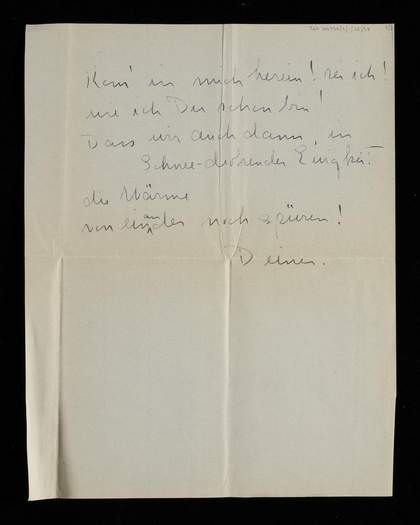 Kom' in mich herein! sei ich!
wie ich Du schon bin!
Dass wir auch dann, in
Schnee-drohender Ewigkeit
die Wärme
von einander noch spüren!
Deiner.